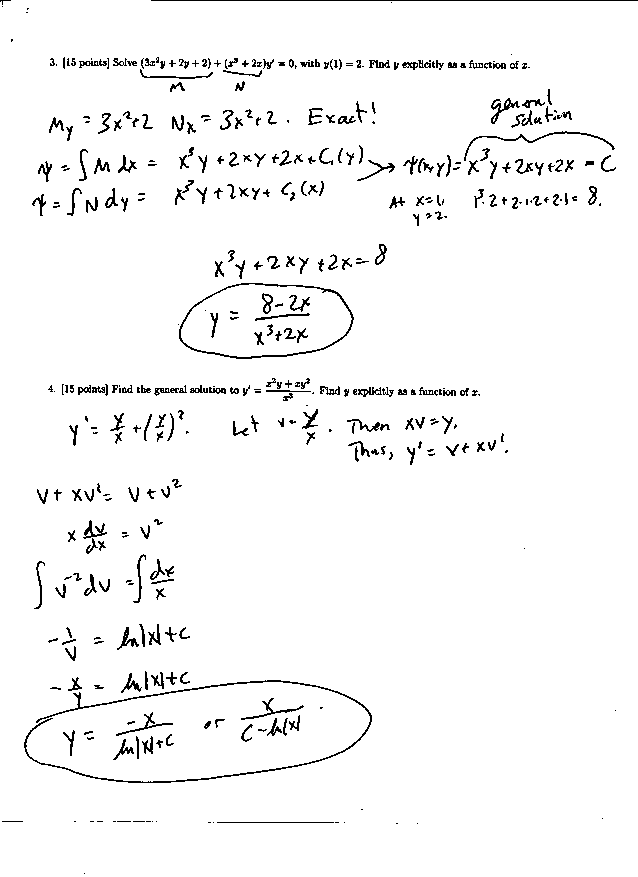 3. [15 points] Solve (3x²y + 2y + 2) + (x³ + 2x)y' = 0, with y(1) = 2. Find y explicitly as a function of x.
M N
My = 3x²+2 Nx = 3x²+2. Exact!
general solution
ψ = ∫M dx = x³y + 2xy + 2x + C₁(y) → ψ(x,y) = x³y + 2xy + 2x = C
ψ = ∫N dy = x³y + 2xy + C₂(x)
At x=1, y=2. 1³·2 + 2·1·2 + 2·1 = 8.
x³y + 2xy + 2x = 8
y = (8-2x)/(x³+2x)
4. [15 points] Find the general solution to y' = (x²y + xy²)/x³. Find y explicitly as a function of x.
y' = y/x + (y/x)². Let v = y/x. Then xv = y.
Thus, y' = v + xv'.
v + xv' = v + v²
x dv/dx = v²
∫v⁻²dv = ∫dx/x
-1/v = ln|x|+c
-x/y = ln|x|+c
y = -x/(ln|x|+c) or x/(C-ln|x|).